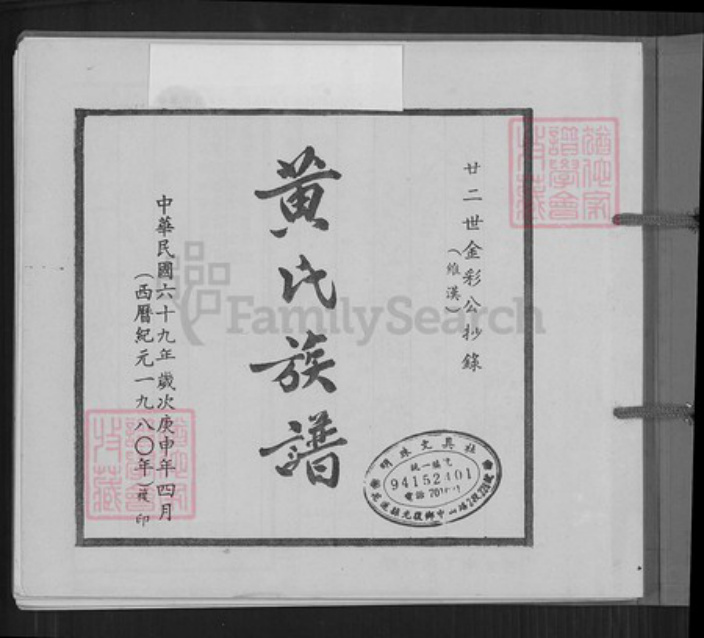 廿二世金彩公抄錄
(維漢)
黃氏族譜
中華民國六十九年歲次庚申年四月
(西曆紀元一九八〇年)複印
明珠文具社
統一編號
94152401
電話
FamilySearch